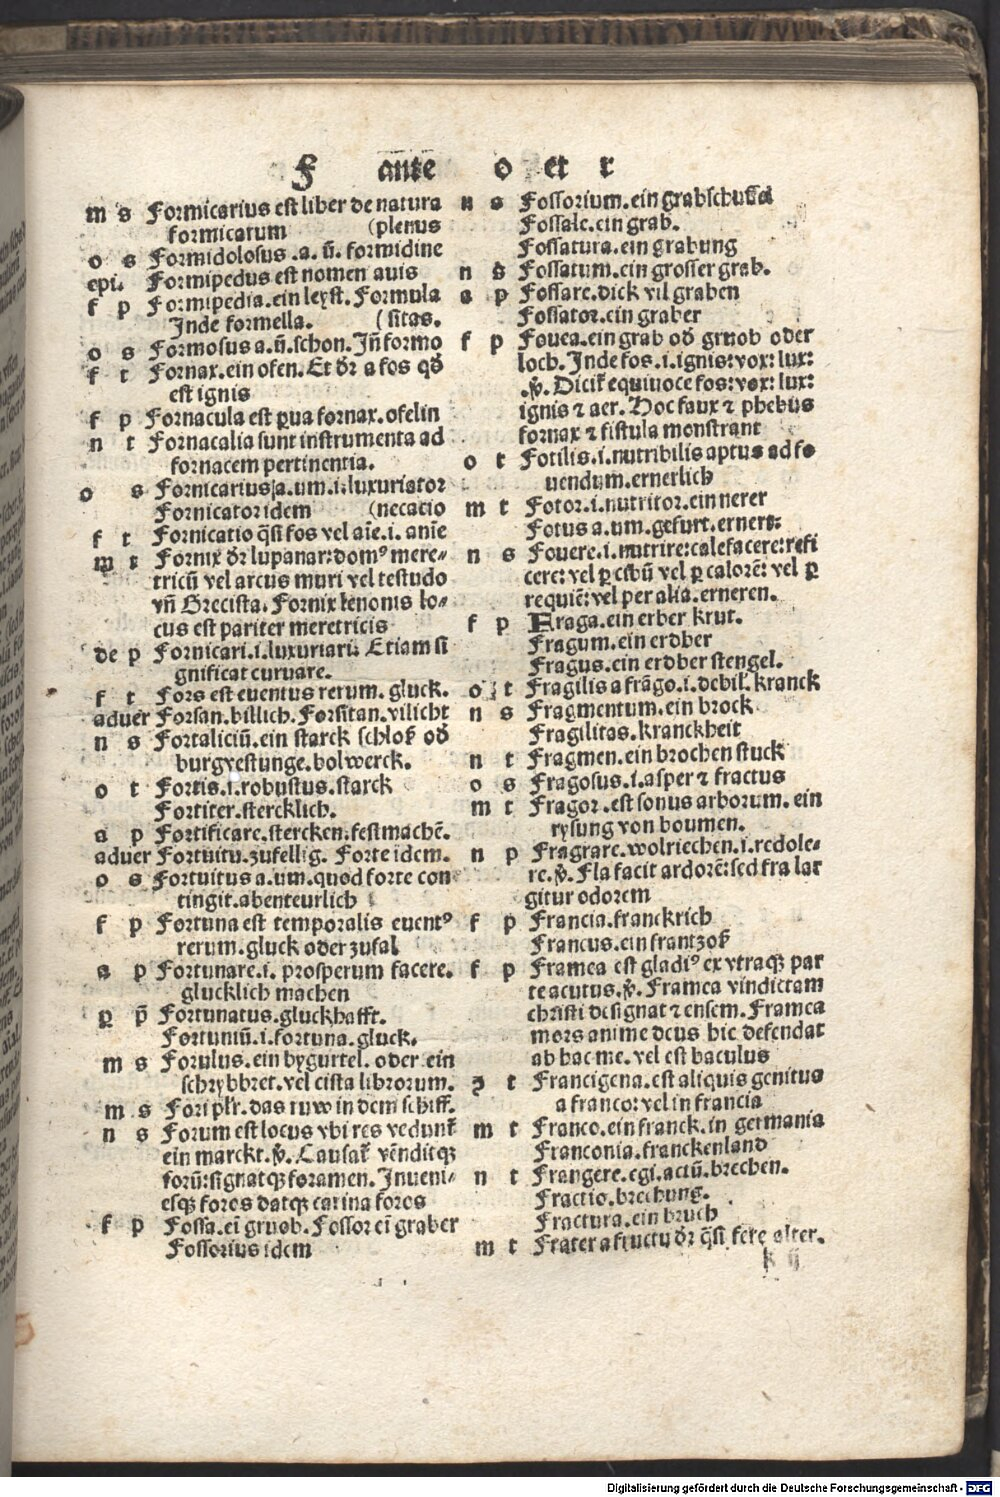 F ante o et r
m s Formicarius est liber de natura
formicarum (plenus
o s Formidolosus .a. ū. formidine
epi. Formipedus est nomen auis
f p Formipedia. ein leyst. Formula
Inde formella. (sitas.
o s Formosus a. ū. schon. Jñ formo
f t Fornax. ein ofen. Et dr̄ a fos qđ
est ignis
f p Fornacula est ꝑua fornax. ofelin
n t Fornacalia sunt instrumenta ad
fornacem pertinentia.
o s Fornicarius a. um. i. luxuriator
Fornicator idem (necatio
f t Fornicatio q̄si fos vel aīe. i. anīe
m t Fornix dr̄ lupanar: domꝰ mere-
tricū vel arcus muri vel testudo
vñ Grecista. Fornix lenonis lo-
cus est pariter meretricis
de p Fornicari. i. luxuriari. Etiam si
gnificat curuare.
f t Fors est euentus rerum. gluck.
aduer Forsan. billich. Forsitan. vilicht
n s Fortaliciū. ein starck schloß ođ
burg vestunge. bolwerck.
o t Fortis. i. robustus. starck
Fortiter. stercklich.
a p Fortificare. stercken. festmachē.
aduer Fortuitu. zufellig. Forte idem.
o s Fortuitus a. um. quod forte con
tingit. abenteurlich
f p Fortuna est temporalis euentꝰ
rerum. gluck oder zufal
a p Fortunare. i. prosperum facere.
glucklich machen
ꝑ p̄ Fortunatus. gluckhafft.
Fortuniū. i. fortuna. gluck.
m s Forulus. ein bygurtel. oder ein
schrybbret. vel cista librorum.
m s Fori plr̄. das ruw in dem schiff.
n s Forum est locus vbi res vedunt̄
ein marckt. ꝟ. Causat̄ vēnditqꝫ
forū: signatqꝫ foramen. Inueni-
esqꝫ foros datqꝫ carina foros
f p Fossa. eī gruob. Fossor eī graber
Fossorius idem
n s Fossorium. ein grabschuffel
Fossale. ein grab.
Fossatura. ein grabung
n s Fossatum. ein grosser grab.
a p Fossare. dick vil graben
Fossator. ein graber
f p Fouea. ein grab ođ gruob oder
loch. Inde fos. i. ignis: vox: lux:
.ꝟ. Dicit̄ equiuoce fos: vox: lux:
ignis ⁊ aer. Hoc faux ⁊ phebus
fornax ⁊ fistula monstrant
o t Fotilis. i. nutribilis aptus ad fo
uendum. ernerlich
m t Fotor. i. nutritor. ein nerer
Fotus a. um. gefurt. ernert:
n s Fouere. i. nutrire: calefacere: refi
cere: vel ꝑ cibū vel ꝑ calorē: vel ꝑ
requiē: vel per alia. erneren.
f p Fraga. ein erber krut.
Fragum. ein erdber
Fragus. ein erdber stengel.
o t Fragilis a frāgo. i. debil̄. kranck
n s Fragmentum. ein brock
Fragilitas. kranckheit
n t Fragmen. ein brochen stuck
o s Fragosus. i. asper ⁊ fractus
m t Fragor. est sonus arborum. ein
rysung von boumen.
n p Fragrare. wolriechen. i. redole-
re. ꝟ. Fla facit ardorē: sed fra lar
gitur odorem
f p Francia. franckrich
Francus. ein frantzoß
f p Framea est gladiꝰ ex vtraqꝫ par
te acutus. ꝟ. Framea vindictam
christi designat ⁊ ensem. Framea
mors anime deus hic defendat
ab hac me. vel est baculus
ꝯ t Francigena. est aliquis genitus
a franco: vel in francia
m t Franco. ein franck. in germania
Franconia. franckenland
n t Frangere. egi. actū. brechen.
Fractio. brechung.
Fractura. ein bruch
m t Frater a fructu dr̄ q̄si fere alter.
k ij
Digitalisierung gefördert durch die Deutsche Forschungsgemeinschaft - DFG